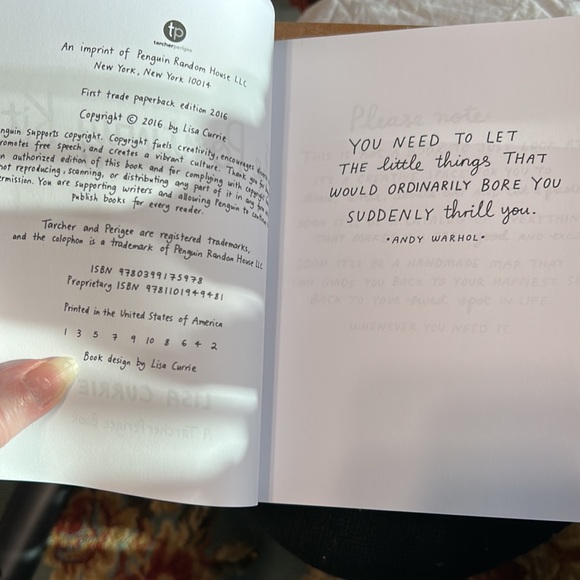 tp
tarcherperigee
An imprint of Penguin Random House LLC
New York, New York 10014
First trade paperback edition 2016
Copyright © 2016 by Lisa Currie
nguin supports copyright. Copyright fuels creativity, encourages
romotes free speech, and creates a vibrant culture. Thank you for
n authorized edition of this book and for complying with copyright
not reproducing, scanning, or distributing any part of it in any
ermission. You are supporting writers and allowing Penguin to continue
publish books for every reader.
Tarcher and Perigee are registered trademarks,
and the colophon is a trademark of Penguin Random House LLC
ISBN 9780399175978
Proprietary ISBN 9781101949481
Printed in the United States of America
1 3 5 7 9 10 8 6 4 2
Book design by Lisa Currie
LISA CURRIE
A TarcherPerigee Book
YOU NEED TO LET
THE little things THAT
WOULD ORDINARILY BORE YOU
SUDDENLY thrill you.
•ANDY WARHOL•
Please note
SOON IT'LL BE A HANDMADE MAP THAT
BACK TO YOUR sweet spot IN LIFE
WHENEVER YOU NEED IT.